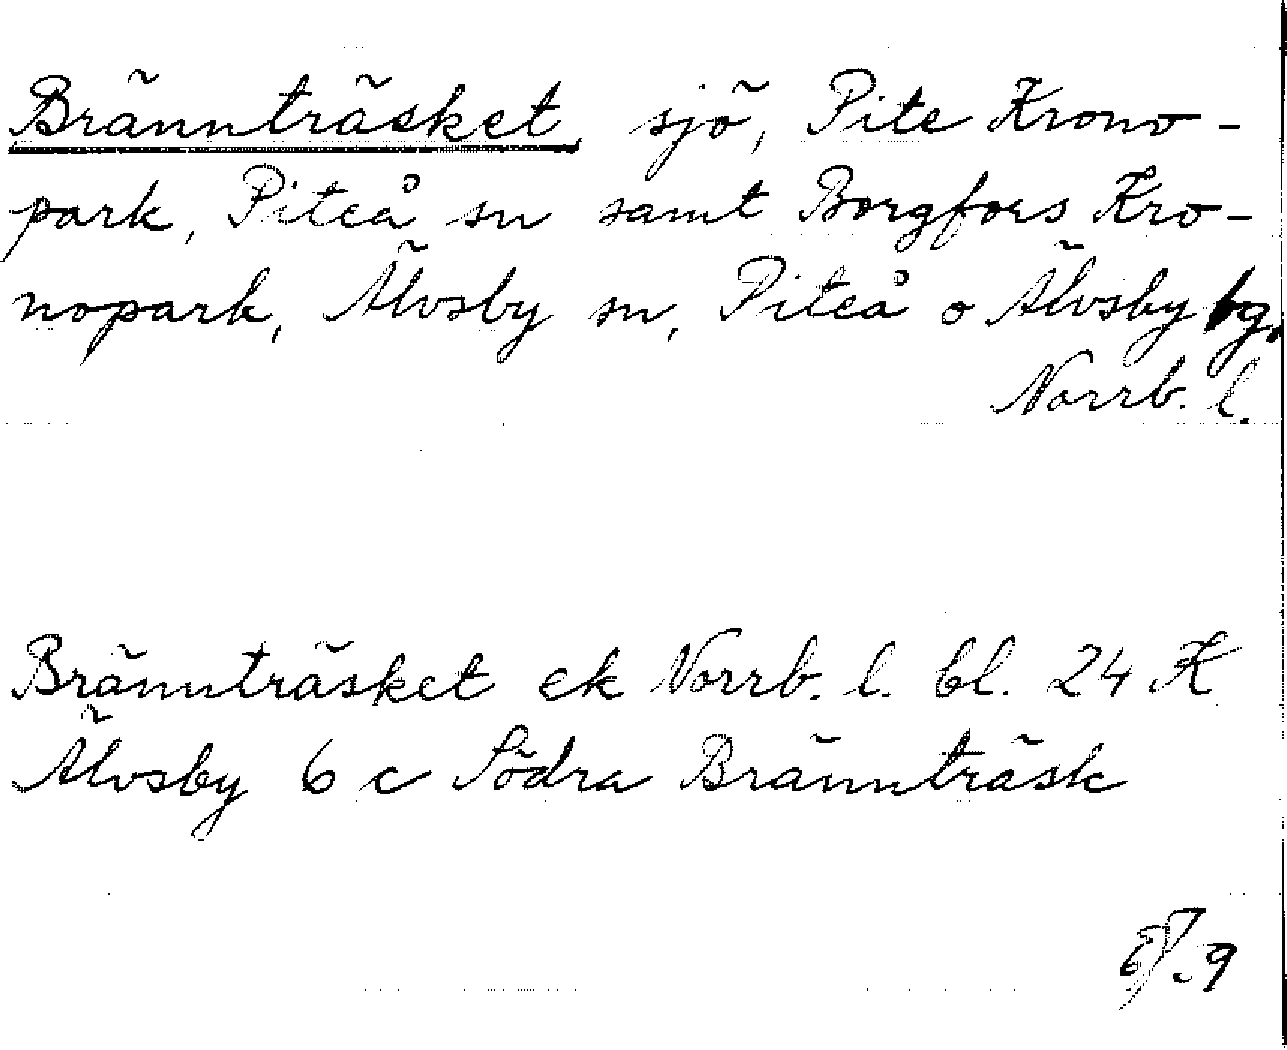 Brännträsket, sjö, Pite Krono-
park, Piteå sn samt Borgfors Kro-
nopark, Älvsby sn, Piteå o Älvsby tg,
Norrb. l.
Brännträsket ek Norrb. l. bl. 24 K
Älvsby 6 c Södra Brännträsk